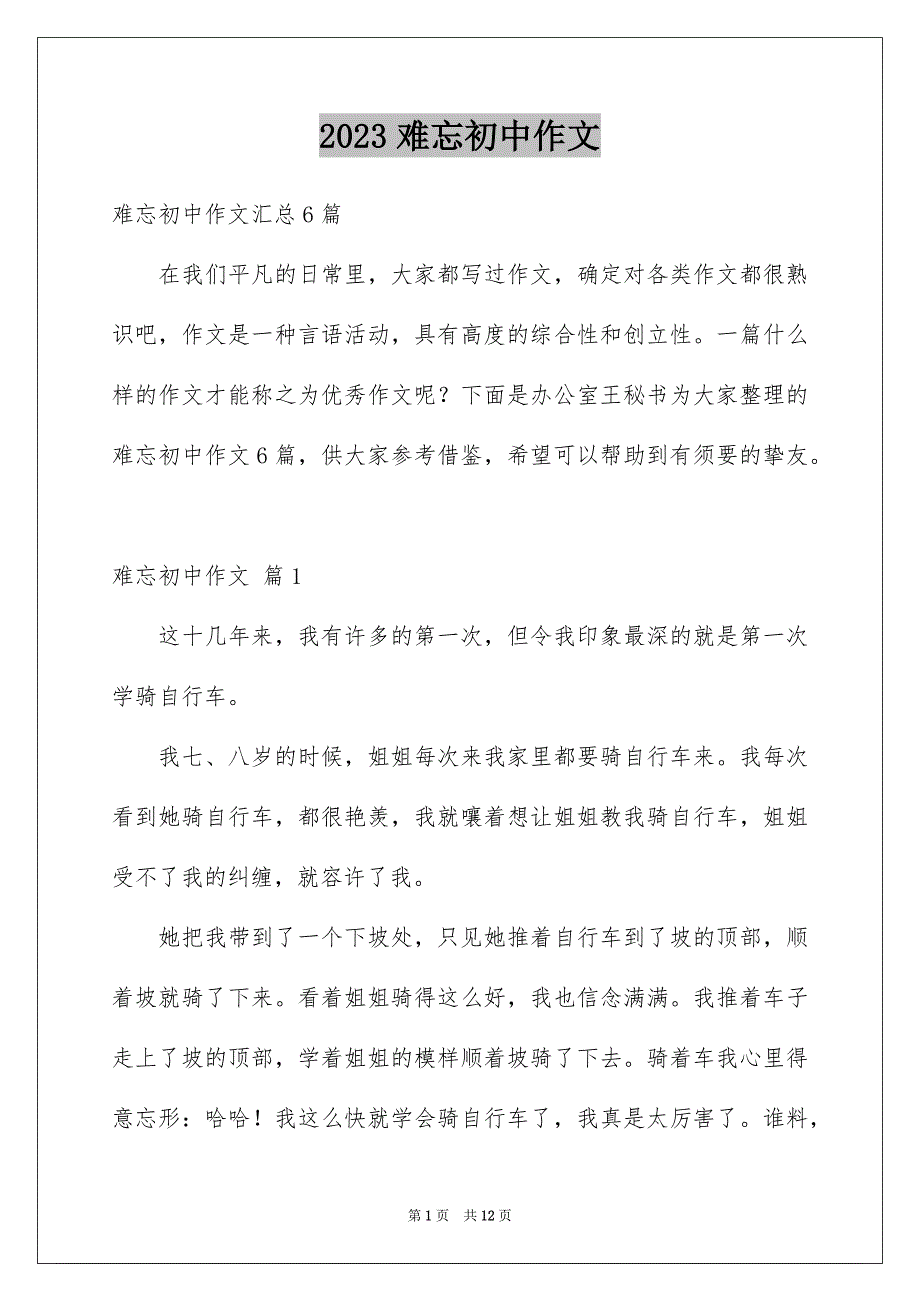 2023难忘初中作文
难忘初中作文汇总6篇
在我们平凡的日常里，大家都写过作文，确定对各类作文都很熟
识吧，作文是一种言语活动，具有高度的综合性和创立性。一篇什么
样的作文才能称之为优秀作文呢？下面是办公室王秘书为大家整理的
难忘初中作文6篇，供大家参考借鉴，希望可以帮助到有须要的挚友。
难忘初中作文 篇1
这十几年来，我有许多的第一次，但令我印象最深的就是第一次
学骑自行车。
我七、八岁的时候，姐姐每次来我家里都要骑自行车来。我每次
看到她骑自行车，都很艳羡，我就嚷着想让姐姐教我骑自行车，姐姐
受不了我的纠缠，就容许了我。
她把我带到了一个下坡处，只见她推着自行车到了坡的顶部，顺
着坡就骑了下来。看着姐姐骑得这么好，我也信念满满。我推着车子
走上了坡的顶部，学着姐姐的模样顺着坡骑了下去。骑着车我心里得
意忘形：哈哈！我这么快就学会骑自行车了，我真是太厉害了。谁料，
第1页 共12页